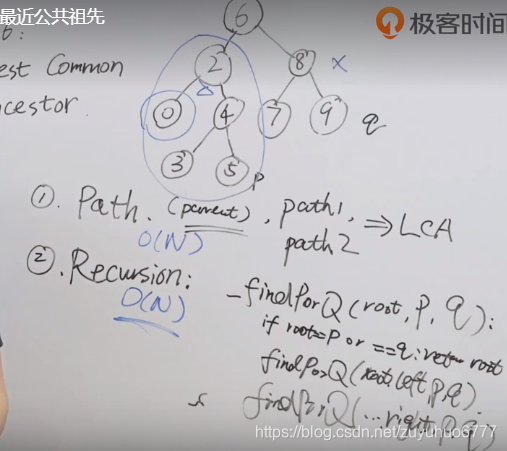 最近公共祖先
极客时间
6
6:
est Common
2
8
x
cestor.
0
4
7
9
q
3
5
P
①. Path. (parent), path1,
path2
⇒ LCA
O(N)
②. Recursion:
O(N)
- findPorQ(root, P, q):
if root==P or ==q: return root
findPorQ(root.left, P, q)
findPorQ(...right, P, q)
https://blog.csdn.net/zuyuhuo6777